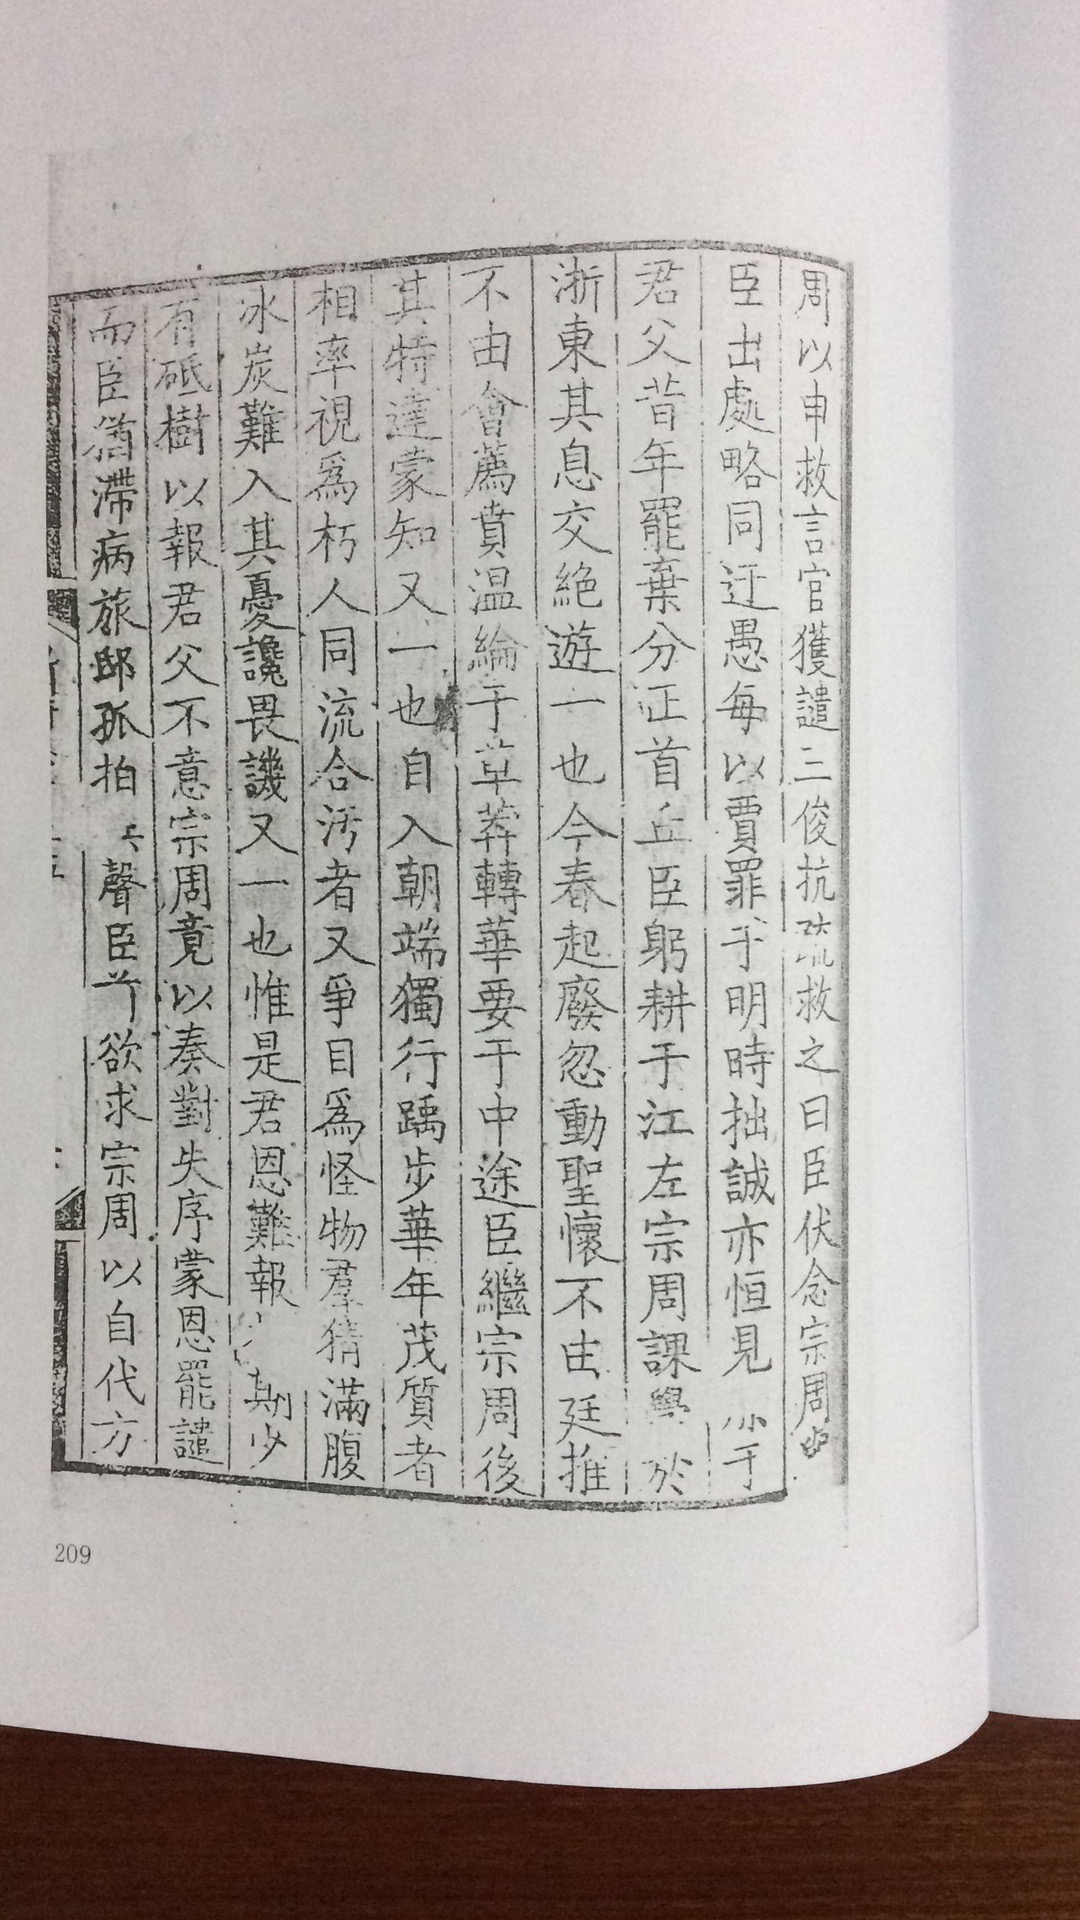 周以申救言官獲譴三俊抗疏救之曰臣伏念宗周
臣出處略同迂愚每以賈罪于明時拙誠亦恒見于
君父昔年罷棄分正首丘臣躬耕于江左宗周課學於
浙東其息交絶遊一也今春起廢忽動聖懷不由廷推
不由會薦賁温綸于草莽轉華要于中途臣繼宗周後
其特達蒙知又一也自入朝端獨行踽步華年茂質者
相率視爲朽人同流合汚者又爭目爲怪物羣猜滿腹
冰炭難入其憂讒畏譏又一也惟是君恩難報期少
有砥樹以報君父不意宗周竟以奏對失序蒙恩罷譴
而臣猶滯病旅邸孤拍聲臣欲求宗周以自代方
209